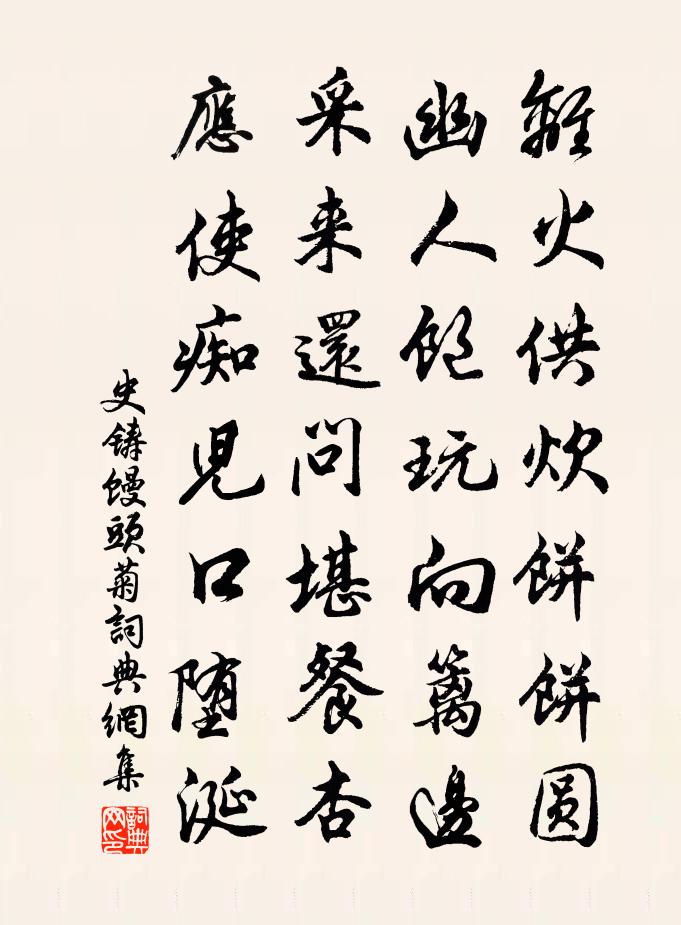 離火供炊餅餅圆
幽人飽玩向籬邊
采来還問堪餐杏
應使痴兒口堕涎
史鋳饅頭菊詞典網集
詞典网印